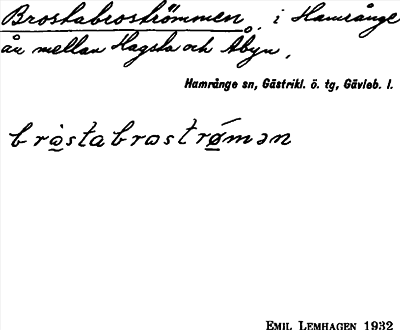 Brostabroströmmen, i Hamrånge
ån mellan Hagsta och Åbyn.
Hamrånge sn, Gästrikl. ö. tg, Gävleb. l.
bròstabroströ́mən
EMIL LEMHAGEN 1932